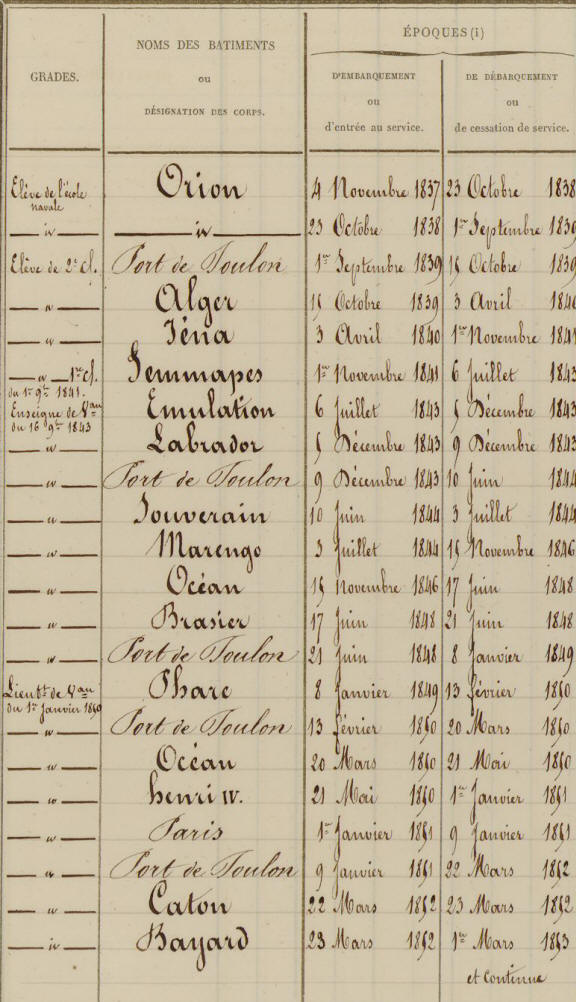 GRADES.
NOMS DES BATIMENTS
ou
DÉSIGNATION DES CORPS.
ÉPOQUES (1)
D'EMBARQUEMENT
ou
d'entrée au service.
DE DÉBARQUEMENT
ou
de cessation de service.
Elève de l'école navale Orion 4 Novembre 1837 23 Octobre 1838
— id — — id — 23 Octobre 1838 1er Septembre 1839
Elève de 2e cl. Port de Toulon 1er Septembre 1839 15 Octobre 1839
— id — Alger 15 Octobre 1839 3 Avril 1840
— id — Iéna 3 Avril 1840 1er Novembre 1841
— id — 1re cl. Jemmapes 1er Novembre 1841 6 Juillet 1843
du 1er 9bre 1841.
Enseigne de Vau Emulation 6 Juillet 1843 5 Décembre 1843
du 16 9bre 1843
— id — Labrador 5 Décembre 1843 9 Décembre 1843
— id — Port de Toulon 9 Décembre 1843 10 Juin 1844
— id — Souverain 10 Juin 1844 3 Juillet 1844
— id — Marengo 3 Juillet 1844 15 Novembre 1846
— id — Océan 15 Novembre 1846 17 Juin 1848
— id — Brasier 17 Juin 1848 21 Juin 1848
— id — Port de Toulon 21 Juin 1848 8 Janvier 1849
Lieutt de Vau Phare 8 Janvier 1849 13 Février 1850
du 1er Janvier 1850
— id — Port de Toulon 13 Février 1850 20 Mars 1850
— id — Océan 20 Mars 1850 21 Mai 1850
— id — henri IV. 21 Mai 1850 1er Janvier 1851
— id — Paris 1er Janvier 1851 9 Janvier 1851
— id — Port de Toulon 9 Janvier 1851 22 Mars 1852
— id — Caton 22 Mars 1852 23 Mars 1852
— id — Bayard 23 Mars 1852 1er Mars 1853
et Continue